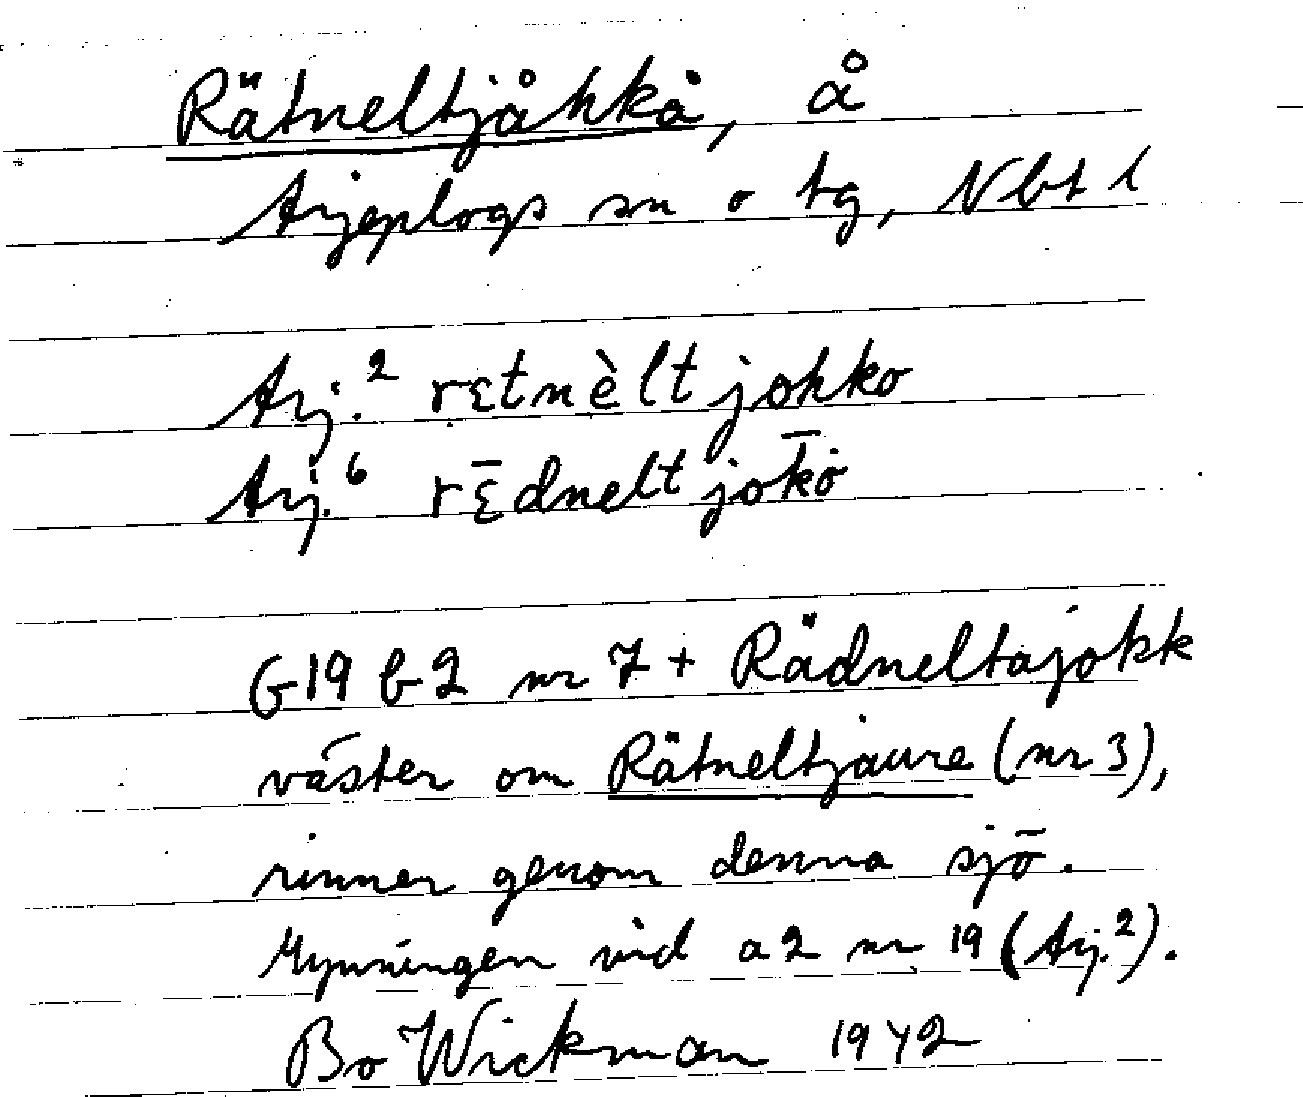 Rätneltjåhkå, å
Arjeplogs sn o tg, Nbt l
Arj.² rɛtnèlt johko
Arj.⁶ rɛ̄dnelt jok̄ȯ
G19 b2 nr 7 + Rädneltajokk
väster om Rätneltjaure (nr 3),
rinner genom denna sjö.
Mynningen vid a2 nr 19 (Arj.²).
Bo Wickman 1942